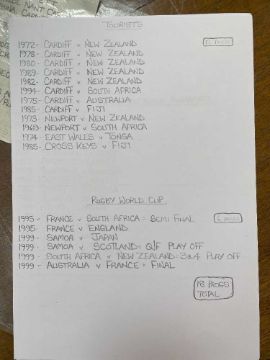 TOURISTS
1972 - CARDIFF v NEW ZEALAND
1978 - CARDIFF v NEW ZEALAND
1980 - CARDIFF v NEW ZEALAND
1989 - CARDIFF v NEW ZEALAND
1982 - CARDIFF v NEW ZEALAND
1994 - CARDIFF v SOUTH AFRICA
1975 - CARDIFF v AUSTRALIA
1985 - CARDIFF v FIJI
1973 NEWPORT v NEW ZEALAND
NEWPORT v SOUTH AFRICA
1974 - EAST WALES v TONGA
1985 - CROSS KEYS v FIJI
RUGBY WORLD CUP
1995 - FRANCE v SOUTH AFRICA = SEMI FINAL
1995 - FRANCE v ENGLAND
1999 - SAMOA v JAPAN
1999 - SAMOA v SCOTLAND = Q/F PLAY OFF
1999 - SOUTH AFRICA v NEW ZEALAND = 3RD/4 PLAY OFF
1999 - AUSTRALIA v FRANCE = FINAL
18 PROGS
TOTAL